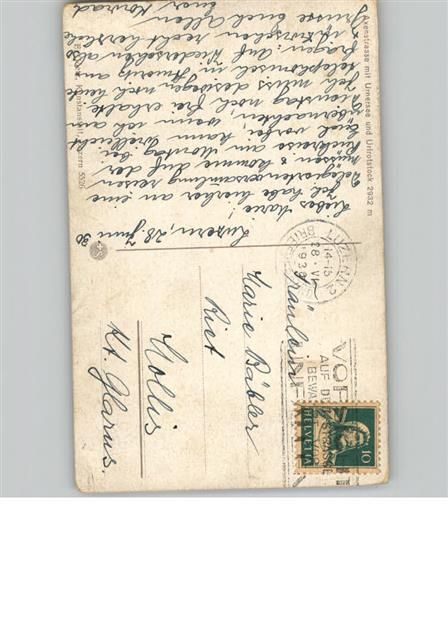 Axenstrasse mit Urnersee und Urirotstock 2932 m
Luzern, 28. Juni 30
Liebes Marie!
Ich habe hierher an eine
Delegiertenversammlung reisen
müssen & komme auf der
Rückreise am Montag bei
Euch vorbei, kann vielleicht
übernachten, wenn ich am
Montag noch frei erhalte
Ich muss deswegen noch heute
telephonisch in
fragen. Auf Wiedersehen also
& inzwischen recht herzliche
Grüsse Euch Allen
Euer Konrad
Kunstanstalt, Luzern 5526
LUZERN 2
28. VI.
14-15
1930
BRIEF
VOR
AUF DER STRASSE
BEWA
Fräulein
Marie Bäbler
Riet
Mollis
Kt. Glarus.
HELVETIA
10